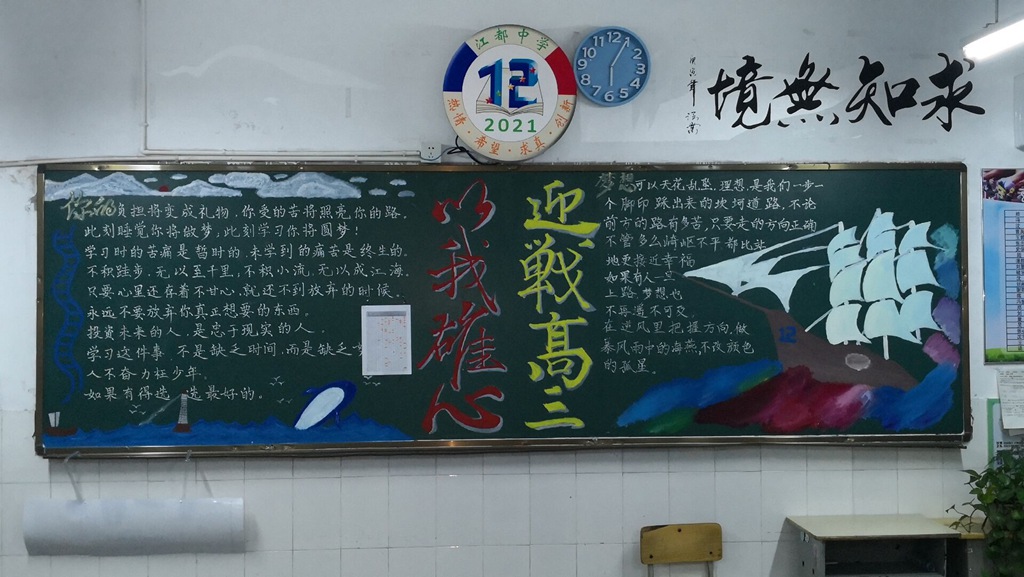 江都中学
12
2021
热情·希望·求真·创新
12 1 2 3 4 5 6 7 8 9 10 11
求知無境
迎戰高三
以我雄心
你的负担将变成礼物,你受的苦将照亮你的路。
此刻睡觉你将做梦,此刻学习你将圆梦!
学习时的苦痛是暂时的,未学到的痛苦是终生的。
不积跬步,无以至千里,不积小流,无以成江海。
只要心里还存着不甘心,就还不到放弃的时候、
永远不要放弃你真正想要的东西。
投资未来的人,是忠于现实的人。
学习这件事,不是缺乏时间,而是缺乏
人不奋力枉少年.
如果有得选 选最好的。
梦想可以天花乱坠,理想是我们一步一
个脚印踩出来的坎坷道路,不论
前方的路有多苦,只要走的方向正确
不管多么崎岖不平都比站
地更接近幸福
如果有人
上路 梦想也
不再遥不可及
在逆风里把握方向,做
暴风雨中的海燕,不改颜色
的孤星。
12